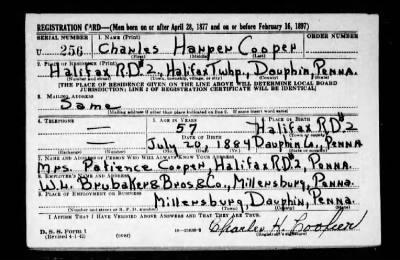 REGISTRATION CARD—(Men born on or after April 28, 1877 and on or before February 16, 1897)
SERIAL NUMBER 1. NAME (Print) ORDER NUMBER
U 256 Charles Harper Cooper
(First) (Middle) (Last)
2. PLACE OF RESIDENCE (Print)
Halifax R.D.#2, Halifax Twp., Dauphin, Penna.
(Number and street) (Town, township, village, or city) (County) (State)
[THE PLACE OF RESIDENCE GIVEN ON THE LINE ABOVE WILL DETERMINE LOCAL BOARD
JURISDICTION; LINE 2 OF REGISTRATION CERTIFICATE WILL BE IDENTICAL]
3. MAILING ADDRESS
Same
[Mailing address if other than place indicated on line 2. If same insert word same]
4. TELEPHONE 5. AGE IN YEARS 6. PLACE OF BIRTH
— 57 Halifax R.D.2
DATE OF BIRTH
— July 20, 1884 Dauphin Co., Penna
7. NAME AND ADDRESS OF PERSON WHO WILL ALWAYS KNOW YOUR ADDRESS
Mrs. Patience Cooper, Halifax R.D.#2, Penna.
8. EMPLOYER'S NAME AND ADDRESS
W.L. Brubaker & Bros & Co., Millersburg, Penna.
9. PLACE OF EMPLOYMENT OR BUSINESS
Millersburg, Dauphin, Penna.
(Number and street or R. F. D. number) (Town) (County) (State)
I AFFIRM THAT I HAVE VERIFIED ABOVE ANSWERS AND THAT THEY ARE TRUE.
D. S. S. Form 1
(Revised 4-1-42) (over) Charles H. Cooper
(Registrant's signature)